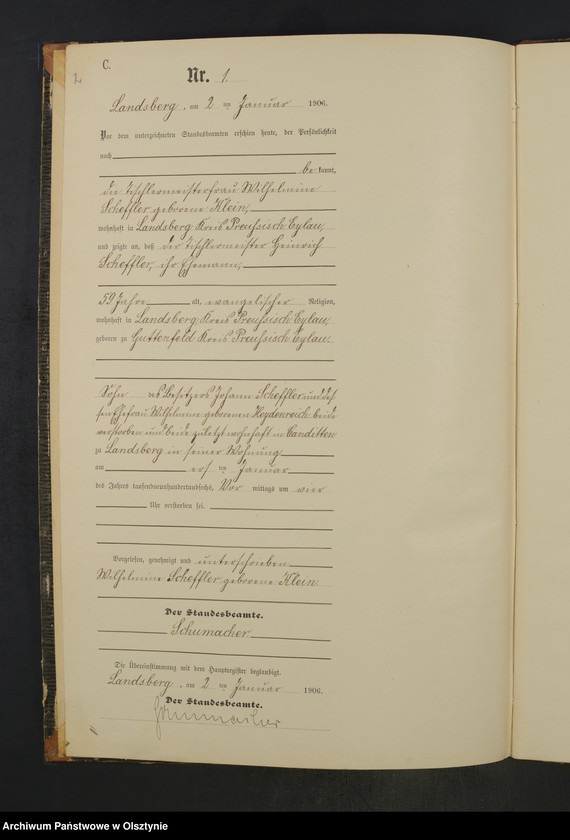 2
C.
Nr. 1.
Landsberg, am 2 ten Januar 1906.
Vor dem unterzeichneten Standesbeamten erschien heute, der Persönlichkeit
nach
be kannt,
die Tischlermeisterfrau Wilhelmine
Scheffler geborene Klein,
wohnhaft in Landsberg Kreis Preußisch Eylau,
und zeigte an, daß der Tischlermeister Heinrich
Scheffler, ihr Ehemann,
59 Jahre alt, evangelischer Religion,
wohnhaft in Landsberg Kreis Preußisch Eylau,
geboren zu Guttenfeld Kreis Preußisch Eylau.
Sohn des Besitzers Johann Scheffler und des
sen Ehefrau Wilhelmine geborenen Heydenreich beide
verstorben und beide zuletzt wohnhaft in Canditten
zu Landsberg in seiner Wohnung
am ersten Januar
des Jahres tausendneunhundertundsechs, Vor mittags um vier
Uhr verstorben sei.
Vorgelesen, genehmigt und unterschrieben
Wilhelmine Scheffler geborene Klein.
Der Standesbeamte.
Schumacher
Die Übereinstimmung mit dem Hauptregister beglaubigt.
Landsberg, am 2 ten Januar 1906.
Der Standesbeamte.
Schumacher
Archiwum Państwowe w Olsztynie